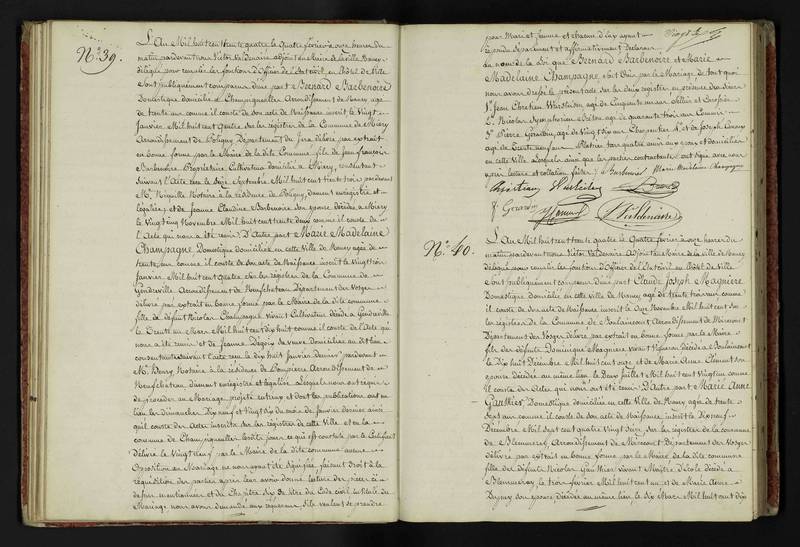 N.° 39.
L'An Mil huit cent trente quatre le Quatre février à onze heures du
matin pardevant nous Victor Valdenaire adjoint au Maire de la Ville de Nancy
délégué pour remplir les fonctions d'Officier de l'Etat civil, en Hôtel de Ville
sont publiquement comparus d'une part Bernard Barbenoire
Domestique domicilié à Champigneulles Arrondissement de Nancy agé
de trente ans comme il conste de son acte de Naissance inscrit le Vingt
Janvier Mil huit cent quatre sur les registres de la Commune de Miery
Arrondissement de Poligny Département du Jura délivré par extrait
en bonne forme par le Maire de la dite Commune, fils de Jean françois
Barbenoire Propriétaire Cultivateur domicilié à Miery, consentant
suivant l'acte reçu le Septembre Mil huit cent trente trois pardevant
M.e Notaire à la résidence de Poligny, dument enregistré et
légalisé, et de Jeanne Claudine Barbenoire son épouse décédée à Miery
le Vingt cinq Novembre Mil huit cent trente deux comme il conste de
l'Acte qui nous a été remis. D'Autre part Marie Madelaine
Champagne, Domestique domiciliée en cette Ville de Nancy agée de
trente ans comme il conste de son acte de Naissance inscrit le Vingt trois
Janvier Mil huit cent quatre sur les registres de la Commune de
Gendreville Arrondissement de Neufchateau Département des Vosges
délivré par extrait en bonne forme par le Maire de la dite commune
fille de défunt Nicolas Champagne vivant Cultivateur décédé à Gendreville
le Trente un Mars Mil huit cent dix huit comme il conste de l'Acte qui
nous a été remis et de Jeanne Depoix sa veuve domiciliée au dit lieu
consentante suivant l'acte reçu le dix huit Janvier dernier pardevant
M.e Henry Notaire à la résidence de Arrondissement de
Neufchateau, dument enregistré et légalisé. Lesquels nous ont requis
de procéder au Mariage projetté entr'eux et dont les publications ont eu
lieu les dimanches Dix neuf et Vingt six du mois de Janvier dernier ainsi
qu'il conste des Actes inscrits sur les registres de cette Ville et en la
commune de Champigneulles les dits jours ce qui est constaté par le Certificat
délivré le Vingt neuf par le Maire de la dite commune aucune
Opposition au Mariage ne nous ayant été signifiée, faisant droit à la
réquisition des parties après leur avoir donné lecture des pièces ci-
dessus mentionnées et du Chapitre Six du titre du Code civil intitulé du
Mariage nous avons demandé aux requérans s'ils veulent se prendre
pour Mari et femme et chacun d'eux ayant
répondu séparément et affirmativement Déclarons
au nom de la Loi que Bernard Barbenoire et Marie
Madelaine Champagne, sont Unis par le Mariage, de tout quoi
nous avons dressé le présent acte sur les deux registres en présence des sieurs
1.° Jean Chrétien agé de Cinquante un ans Sellier et Carossier
2.° Nicolas Symphorien agé de quarante trois ans Commis
3.° Pierre Girardin agé de Vingt six ans Charpentier & 4.° de Joseph
agé de trente neuf ans Platrier tous quatre amis aux époux et domiciliés
en cette Ville Lesquels ainsi que les parties contractantes ont signé avec nous
après lecture et collation faites. B Barbenoire Marie Madelaine Champagne
P Girardin Valdenaire
N.° 40.
L'An Mil huit cent trente quatre le Quatre février à onze heures du
matin pardevant nous Victor Valdenaire Adjoint au Maire de la Ville de Nancy
délégué pour remplir les fonctions d'Officier de l'Etat civil, en Hôtel de Ville
sont publiquement comparus d'une part Claude Joseph Magniere
Domestique domicilié en cette ville de Nancy agé de trente trois ans comme
il conste de son acte de Naissance inscrit le Onze Novembre Mil huit cent sur
les registres de la Commune de Poulaincourt Arrondissement de Mirecourt
Département des Vosges délivré par extrait en bonne forme par le Maire
fils des défunts Dominique Magniere vivant Vigneron décédé à Poulaincourt
le Dix huit Décembre Mil huit cent onze et de Marie Anne Clement son
épouse décédée au même lieu le Deux Juillet Mil huit cent Vingt un comme
il conste des Actes qui nous ont été remis. D'Autre part Marie Anne
Gauthier, Domestique domiciliée en cette Ville de Nancy agée de trente
sept ans comme il conste de son acte de Naissance inscrit le Dix neuf
Décembre Mil sept cent quatre Vingt Seize sur les registres de la commune
de Blemerey Arrondissement de Mirecourt Département des Vosges
délivré par extrait en bonne forme par le Maire de la dite commune
fille des défunts Nicolas Gauthier vivant Maître d'école décédé à
Blemerey, le trois février Mil huit cent un et de Marie Anne
son épouse, décédée au même lieu, le dix Mars Mil huit cent dix